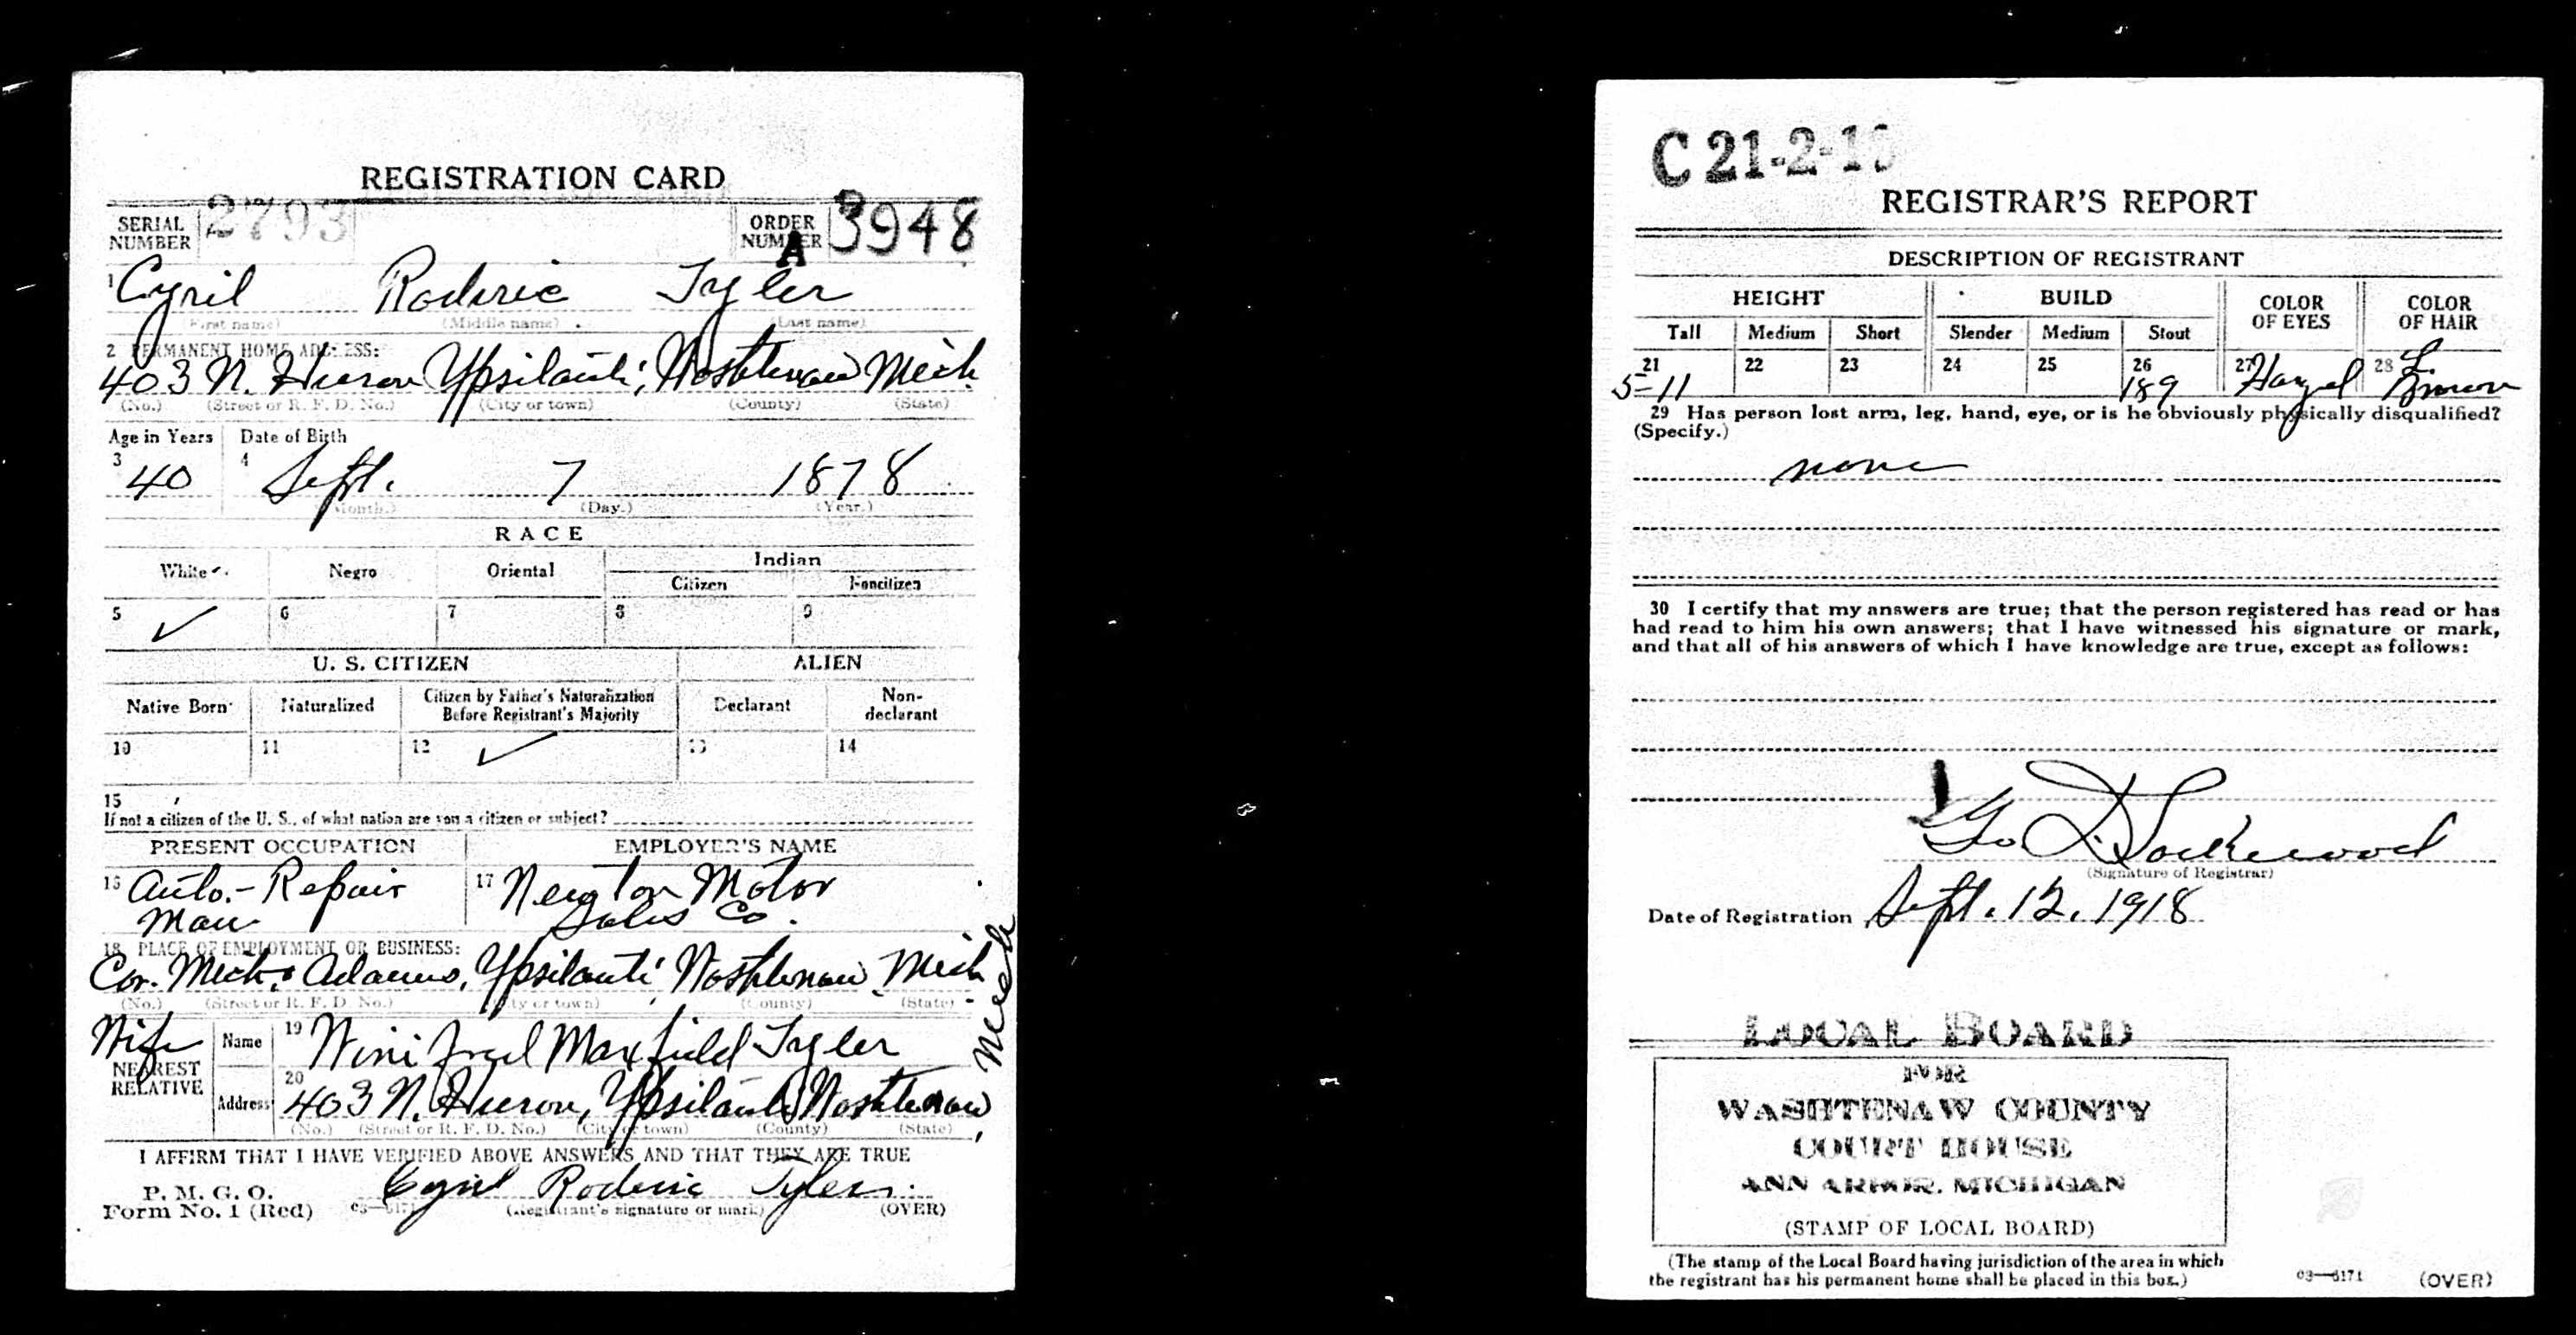 REGISTRATION CARD
SERIAL NUMBER 2793 ORDER NUMBER A 3948
1 Cyril Roderic Tyler
(First name) (Middle name) (Last name)
2 PERMANENT HOME ADDRESS:
403 N. Huron Ypsilanti, Washtenaw Mich
(No.) (Street or R. F. D. No.) (City or town) (County) (State)
Age in Years Date of Birth
3 40 4 Sept. 7 1878
(Month.) (Day.) (Year.)
RACE
White Negro Oriental Indian
Citizen Noncitizen
5 ✓ 6 7 8 9
U. S. CITIZEN ALIEN
Native Born Naturalized Citizen by Father's Naturalization Before Registrant's Majority Declarant Non-declarant
10 11 12 ✓ 13 14
15
If not a citizen of the U. S., of what nation are you a citizen or subject?
PRESENT OCCUPATION EMPLOYER'S NAME
16 Auto.-Repair 17 Newton Motor
Man Sales Co.
18 PLACE OF EMPLOYMENT OR BUSINESS:
Cor. Mich. & Adams, Ypsilanti, Washtenaw, Mich
(No.) (Street or R. F. D. No.) (City or town) (County) (State)
Wife
NEAREST RELATIVE
Name 19 Winifred Maxfield Tyler
Address 20 403 N. Huron, Ypsilanti Washtenaw, Mich
(No.) (Street or R. F. D. No.) (City or town) (County) (State)
I AFFIRM THAT I HAVE VERIFIED ABOVE ANSWERS AND THAT THEY ARE TRUE
P. M. G. O.
Form No. 1 (Red) 03—6171 Cyril Roderic Tyler.
(Registrant's signature or mark) (OVER)
C 21-2-1
REGISTRAR'S REPORT
DESCRIPTION OF REGISTRANT
HEIGHT BUILD COLOR OF EYES COLOR OF HAIR
Tall Medium Short Slender Medium Stout
21 5-11 22 23 24 25 26 189 27 Hazel 28 L. Brown
29 Has person lost arm, leg, hand, eye, or is he obviously physically disqualified?
(Specify.)
none
30 I certify that my answers are true; that the person registered has read or has
had read to him his own answers; that I have witnessed his signature or mark,
and that all of his answers of which I have knowledge are true, except as follows:
Geo D. Lockwood
(Signature of Registrar)
Date of Registration Sept. 12, 1918
LOCAL BOARD
FOR
WASHTENAW COUNTY
COURT HOUSE
ANN ARBOR, MICHIGAN
(STAMP OF LOCAL BOARD)
(The stamp of the Local Board having jurisdiction of the area in which
the registrant has his permanent home shall be placed in this box.)
03—6171 (OVER)